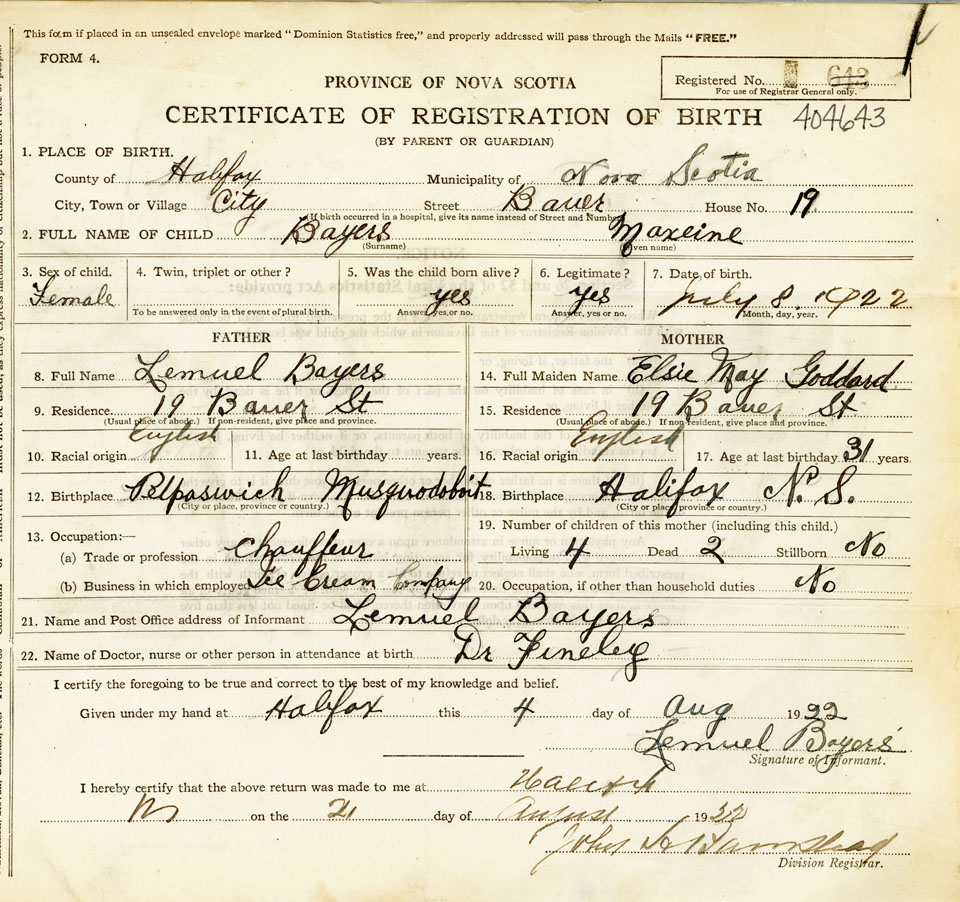 This form if placed in an unsealed envelope marked "Dominion Statistics free," and properly addressed will pass through the Mails "FREE."
FORM 4.
PROVINCE OF NOVA SCOTIA
Registered No. 643
For use of Registrar General only.
CERTIFICATE OF REGISTRATION OF BIRTH 404643
(BY PARENT OR GUARDIAN)
1. PLACE OF BIRTH.
County of Halifax Municipality of Nova Scotia
City, Town or Village City Street Bauer House No. 19
(If birth occurred in a hospital, give its name instead of Street and Number)
2. FULL NAME OF CHILD Bayers Maxeine
(Surname) (Given name)
3. Sex of child. 4. Twin, triplet or other? 5. Was the child born alive? 6. Legitimate? 7. Date of birth.
Female yes yes July 8. 1922
To be answered only in the event of plural birth. Answer, yes or no. Answer, yes or no. Month, day, year.
FATHER MOTHER
8. Full Name Lemuel Bayers 14. Full Maiden Name Elsie May Goddard
9. Residence 19 Bauer St 15. Residence 19 Bauer St
(Usual place of abode.) If non-resident, give place and province. (Usual place of abode.) If non-resident, give place and province.
10. Racial origin English 11. Age at last birthday years. 16. Racial origin English 17. Age at last birthday 31 years
12. Birthplace Musquodoboit 18. Birthplace Halifax N. S.
(City or place, province or country.) (City or place, province or country)
13. Occupation:— 19. Number of children of this mother (including this child.)
(a) Trade or profession Chauffeur Living 4 Dead 2 Stillborn No
(b) Business in which employed Ice Cream Company 20. Occupation, if other than household duties No
21. Name and Post Office address of Informant Lemuel Bayers
22. Name of Doctor, nurse or other person in attendance at birth Dr Fineley
I certify the foregoing to be true and correct to the best of my knowledge and belief.
Given under my hand at Halifax this 4 day of Aug 1922
Lemuel Bayers
Signature of Informant.
I hereby certify that the above return was made to me at Halifax
on the 21 day of August 1922
John A Barnstead
Division Registrar.